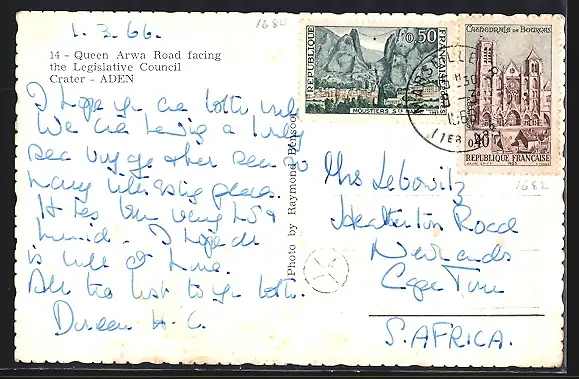 1.3.66.
1684
14 - Queen Arwa Road facing
the Legislative Council
Crater - ADEN
I hope you are both well
We are having a lovely
sea voyage & have seen so
many interesting places.
It has been very hot &
humid. I hope all
is well at home.
All the best to you both.
Doreen H. C.
Photo by Raymond Benson
REPUBLIQUE
FRANÇAISE
0,50
MOUSTIERS Ste MARIE
CATHEDRALE DE BOURGES
0,40
REPUBLIQUE FRANÇAISE
MARSEILLE
1682
Mrs Lebowitz
Heatherton Road
Newlands
Cape Town
S. AFRICA.